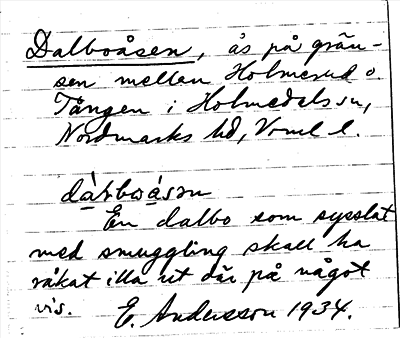 Dalboåsen, ås på grän-
sen mellan Holmerud o.
Tången i Holmedals sn,
Nordmarks hd, Vrml l.
dàrboásrn
En dalbo som sysslat
med smuggling skall ha
råkat illa ut där på något
vis. E. Andersson 1934.